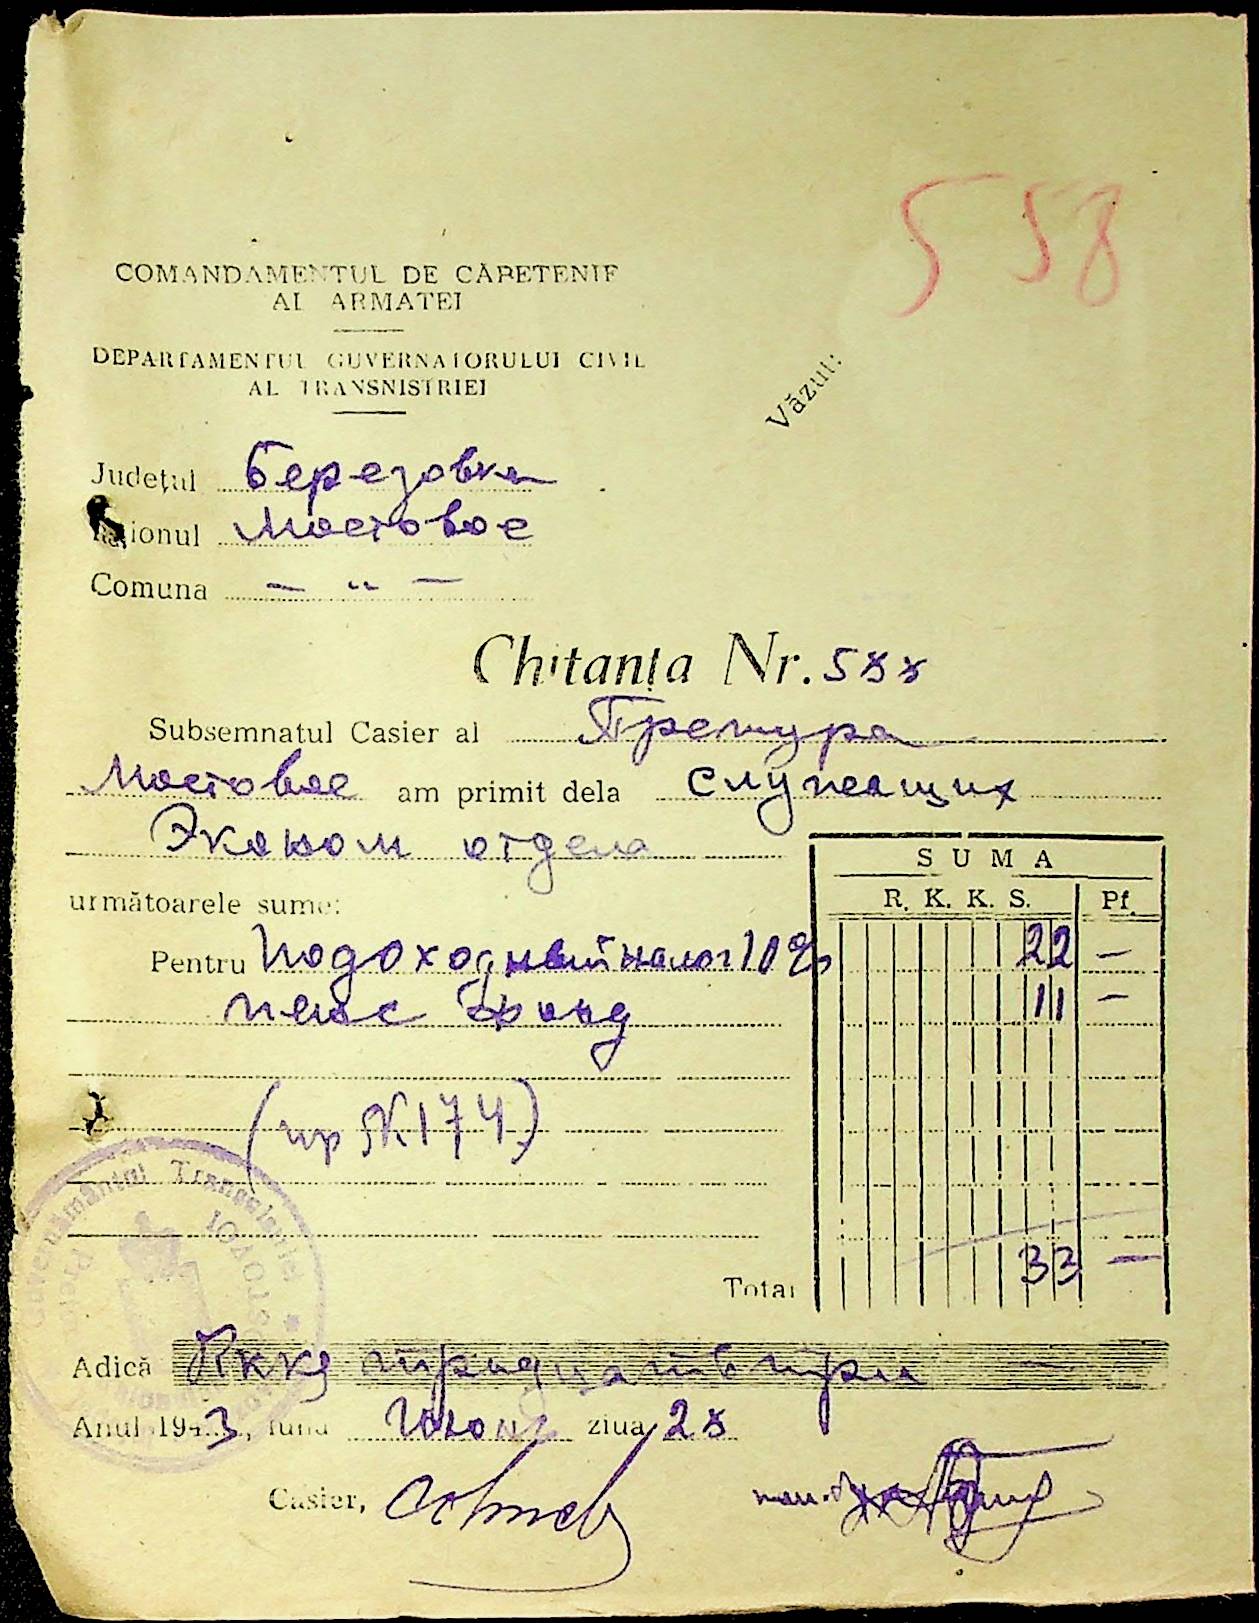 558
COMANDAMENTUL DE CĂPETENIE
AL ARMATEI
DEPARTAMENTUL GUVERNATORULUI CIVIL
AL TRANSNISTRIEI
Văzut:
Județul Березовка
Raionul Мостовое
Comuna — „ —
Chitanța Nr. 588
Subsemnatul Casier al Претура
Мостовое am primit dela служащих
Эконом отдела
SUMA
următoarele sume: R. K. K. S. Pf.
Pentru Подоходный налог 10% 22 —
пенс Фонд 11 —
(пр № 174)
Total 33 —
Adică Ркке тридцать три —
Anul 1943, luna Июнь ziua 28
Casier,
Guvernământul Transnistriei